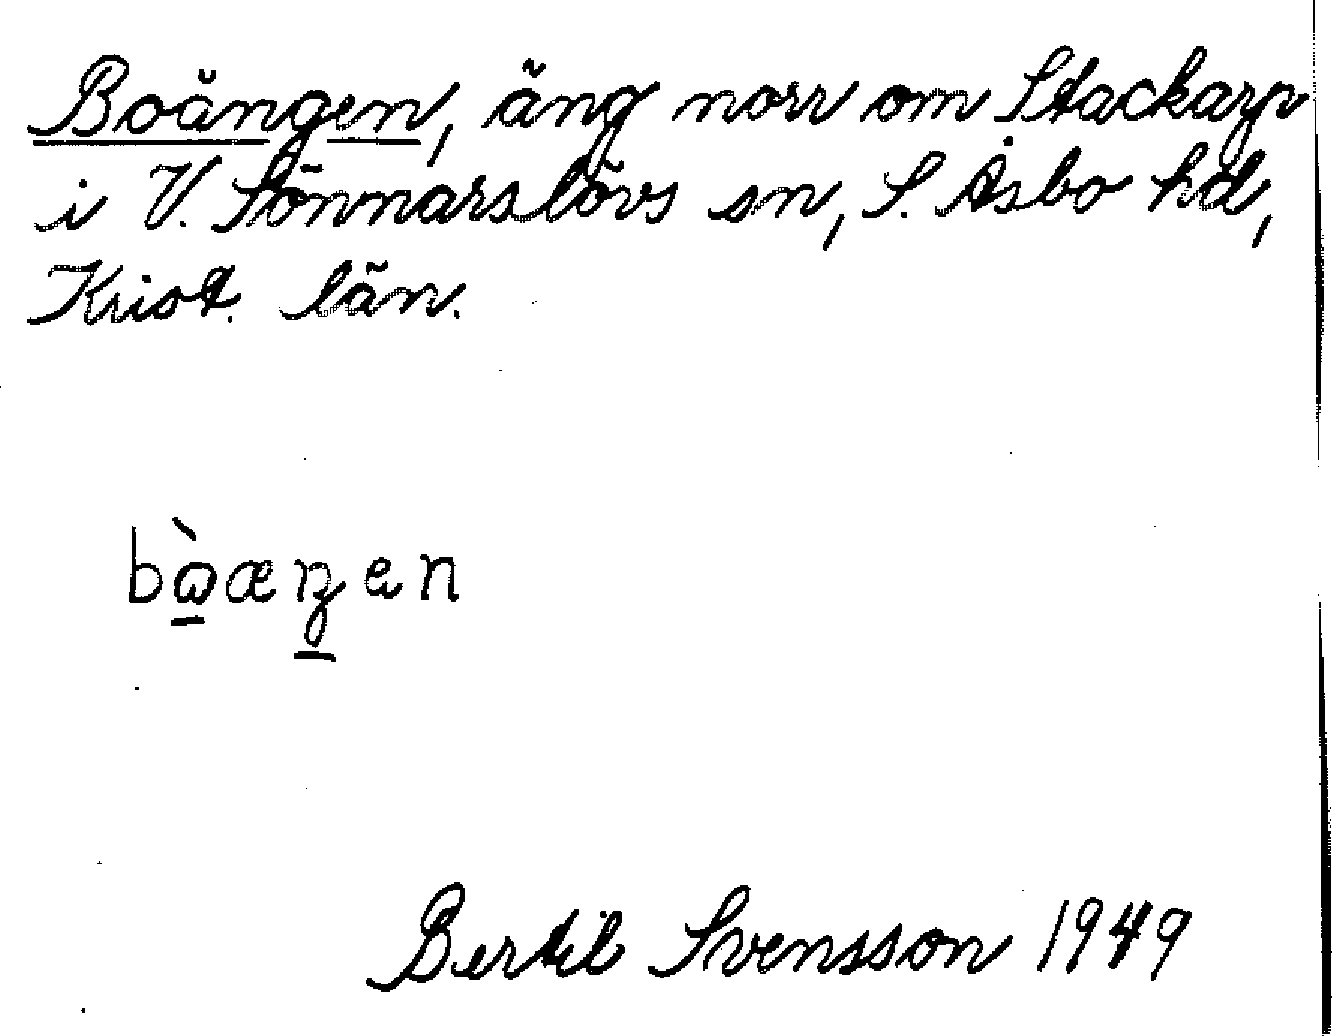 Boängen, äng norr om Stackarp
i V. Sönnarslövs sn, S. Åsbo hd,
Krist. län.
bὼæŋen
Bertil Svensson 1949